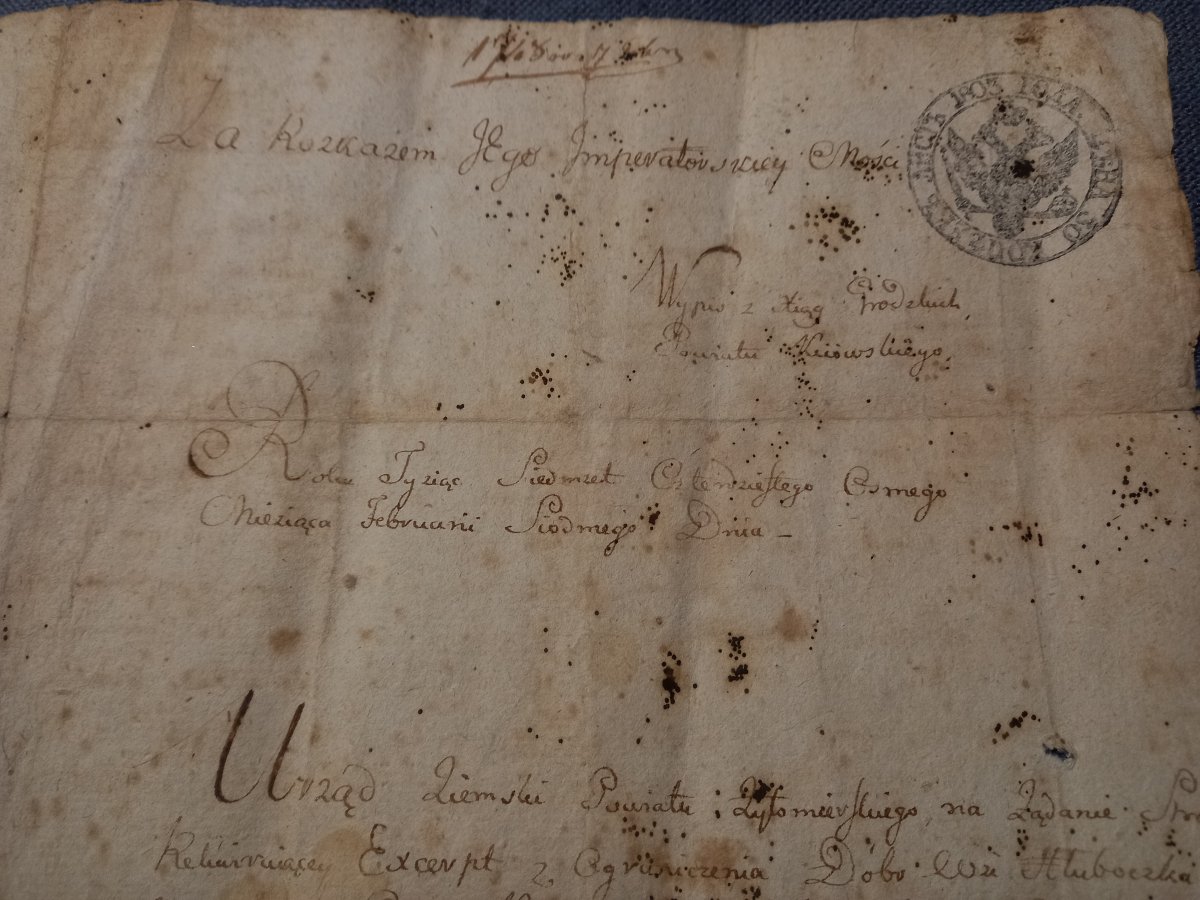 1748 7
Za Rozkazem Jego Imperatorskiey Mości
ЛИСТ. 1803. ГОДА. ЦѢНА 30 КОПѢЕКЪ
Wypis z Xiąg Grodzkich,
Powiatu Kiiowskiego,
Roku Tysiąc Siedmset Czterdziestego Osmego
Miesiąca Februarii Siodmego Dnia –
Urząd Ziemski Powiatu Zytomierskiego, na Żądanie Stro
Rekwiruiącey Excerpt z Ograniczenia Dobr Wsi Hłuboczka